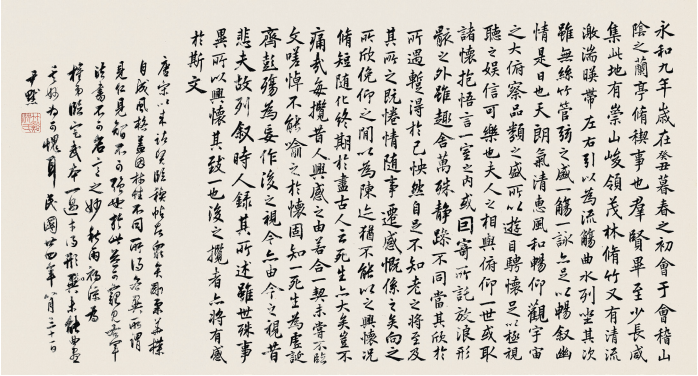 永和九年歲在癸丑暮春之初會于會稽山
陰之蘭亭脩稧事也群賢畢至少長咸
集此地有崇山峻領茂林脩竹又有清流
激湍暎帶左右引以為流觴曲水列坐其次
雖無絲竹管弦之盛一觴一詠亦足以暢叙幽
情是日也天朗氣清惠風和暢仰觀宇宙
之大俯察品類之盛所以遊目騁懷足以極視
聽之娛信可樂也夫人之相與俯仰一世或取
諸懷抱悟言一室之內或因寄所託放浪形
骸之外雖趣舍萬殊靜躁不同當其欣於
所遇暫得於己怏然自足不知老之將至及
其所之既惓情隨事遷感慨係之矣向之
所欣俛仰之間以為陳迹猶不能以之興懷況
脩短隨化終期於盡古人云死生亦大矣豈不
痛哉每攬昔人興感之由若合一契未嘗不臨
文嗟悼不能喻之於懷固知一死生為虛誕
齊彭殤為妄作後之視今亦由今之視昔
悲夫故列叙時人錄其所述雖世殊事
異所以興懷其致一也後之攬者亦將有感
於斯文
唐宋以來諸賢臨稧帖者眾矣
自成風格蓋因性不同所得各異所謂
見仁見智不可強也於此益可窺見右軍
法書不可言之妙
臨定武本一過形貌未能曲盡
其妙為可愧耳民國廿四年八月三十一日
尹默